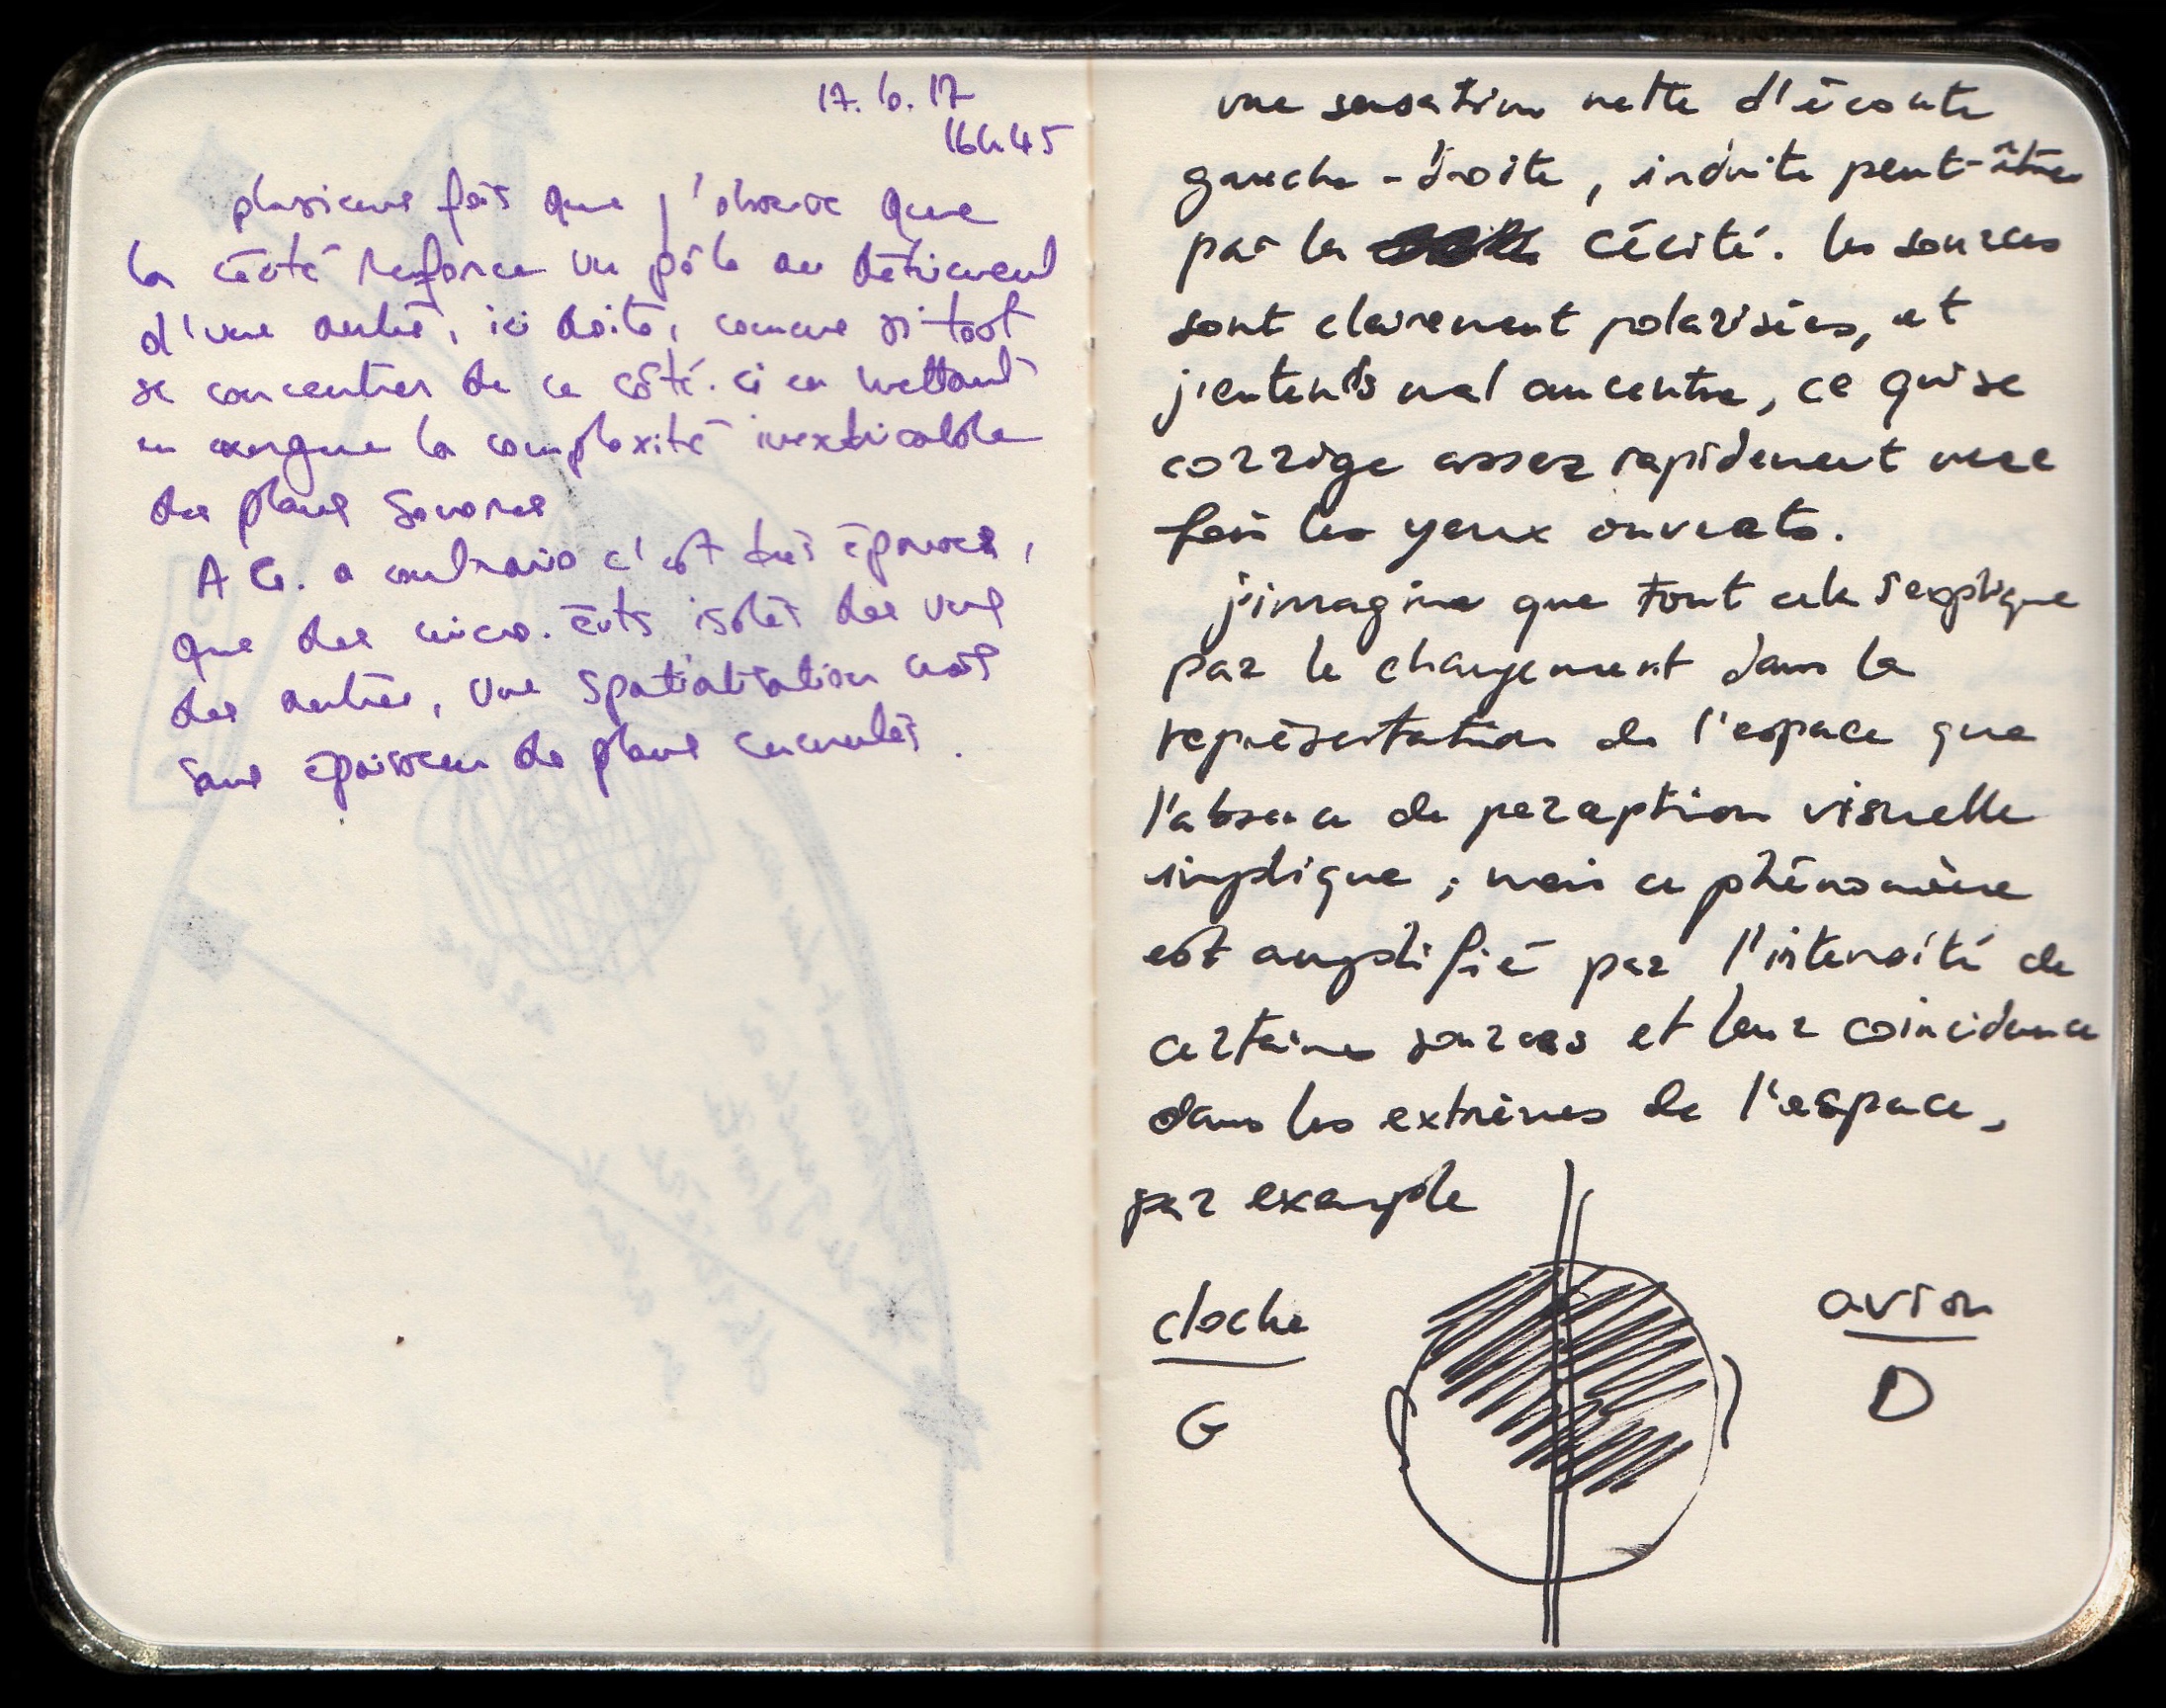 17.6.17
16h45
plusieurs fois que j'observe que
la cécité renforce un pôle au détriment
d'une autre, ici droite, comme si tout
se concentrer de ce côté. ci en mettant
en exergue la complexité inextricable
des plans sonores
A G. a contrario c'est très épars,
que des micro. évts isolés des uns
des autres, une spatialisation mais
sans épaisseur de plans cumulés.
une sensation nette d'écoute
gauche-droite, induite peut-être
par la cécité. les sources
sont clairement polarisées, et
j'entends mal au centre, ce qui se
corrige assez rapidement une
fois les yeux ouverts.
j'imagine que tout cela s'explique
par le changement dans la
représentation de l'espace que
l'absence de perception visuelle
implique ; mais ce phénomène
est amplifié par l'intensité de
certaines sources et leur coincidence
dans les extrèmes de l'espace,
par example
cloche
G
avion
D